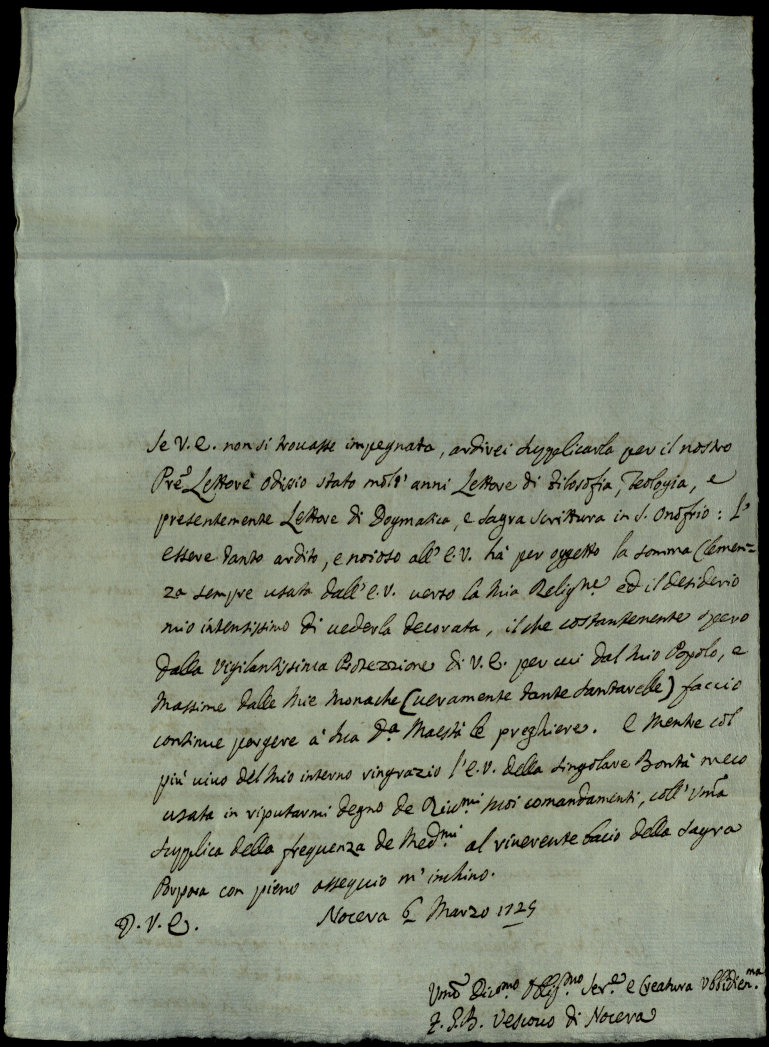 Se V. E. non si trovasse impegnata, ardirei supplicarla per il nostro
Pre Lettore Odisio stato molt'anni Lettore di Filosofia, Teologia, e
presentemente Lettore di Dogmatica, e Sagra Scrittura in S. Onofrio: L'
essere tanto ardito, e noioso all'E.V. hà per oggetto la somma Clemen=
za sempre usata dall'E.V. verso la mia Religne ed il desiderio
mio intentissimo di vederla decorata, il che costantemente spero
dalla vigilantissima Protezzione di V.E. per cui dal mio Popolo, e
massime dalle mie monache (veramente tante santarelle) faccio
continue porgere à sua Da Maestà le preghiere. E mentre col
più vivo del mio interno ringrazio l'E.V. della singolare Bontà meco
usata in riputarmi degno de suoi comandamenti, coll'uma
supplica della frequenza de Medmi al riverente bacio della Sagra
Porpora con pieno ossequio m'inchino.
D. V. E. Nocera 6 Marzo 1725
Umo Divmo Obligmo Serre e Creatura Ubbidienma
F. Vescovo di Nocera